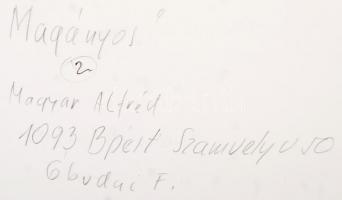 Magányos"
2
Magyar Alfréd
1093 Bpest Szamuely u 50
Óbudai F.